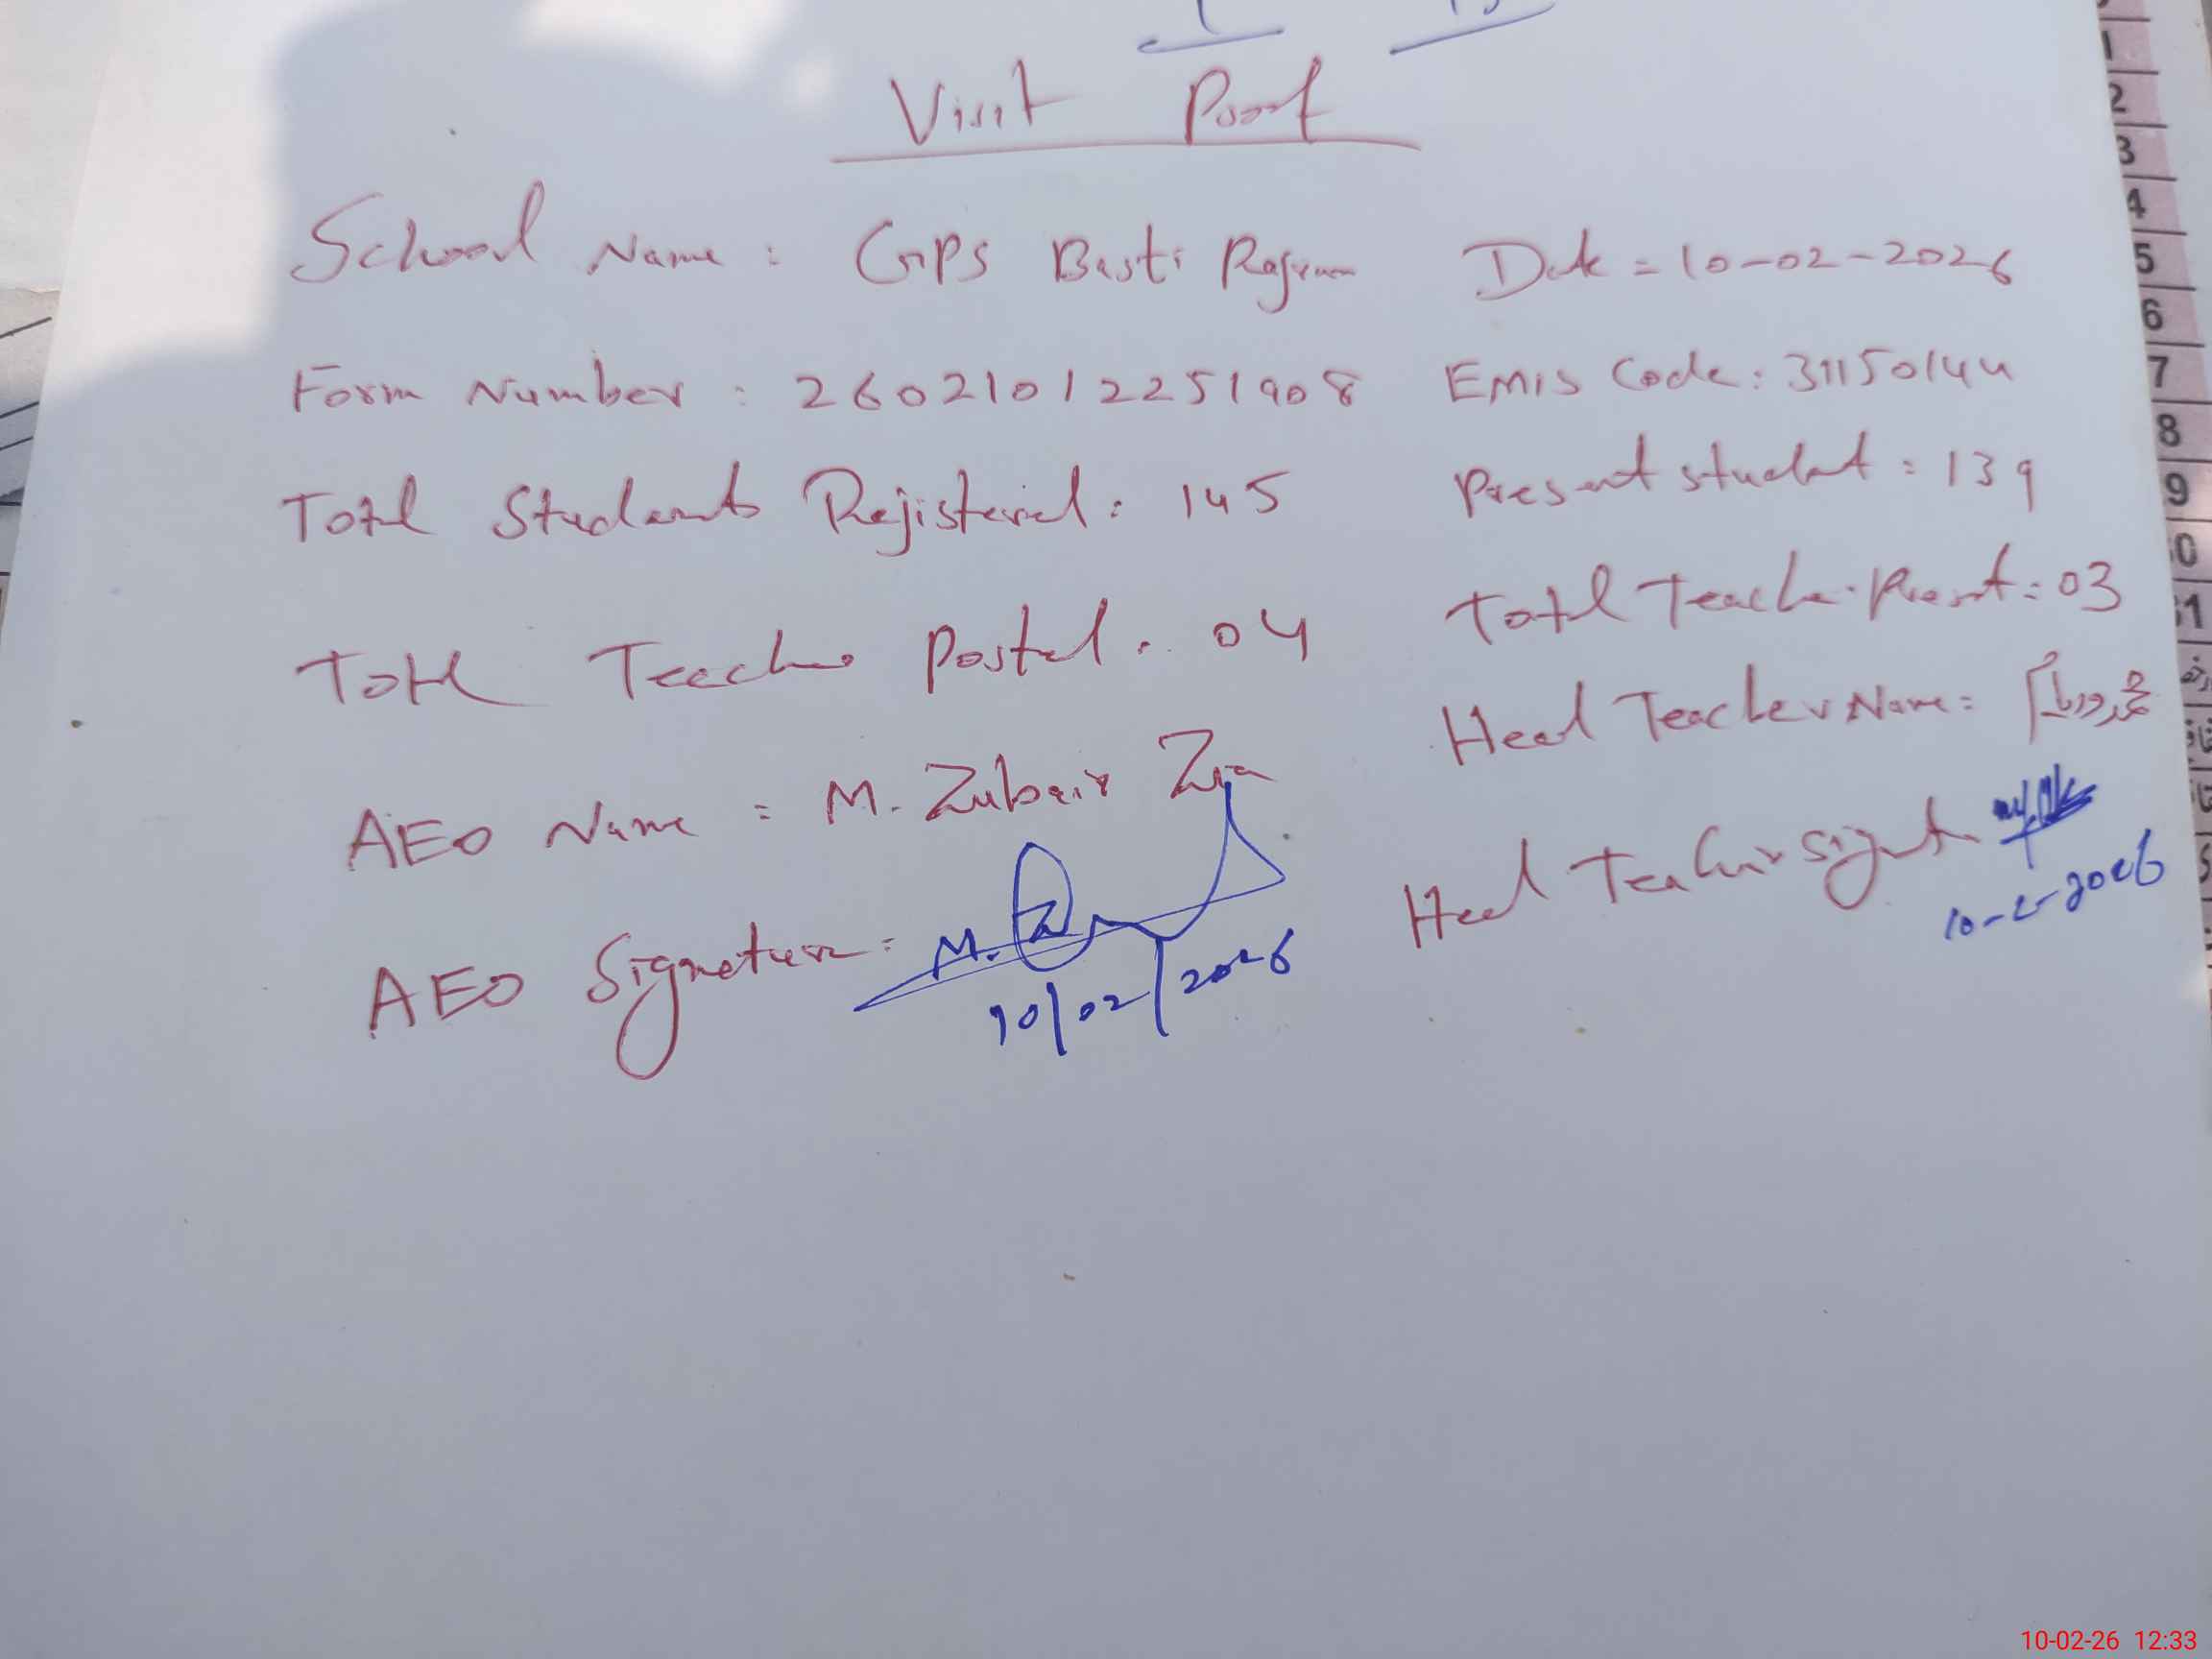 Visit Proof
School Name : GPS Basti Rajram Date = 10-02-2026
Form Number : 260210122251908 EMIS Code : 31150144
Total Students Rejistered : 145 Present student : 139
Total Teacher Posted : 04 Total Teacher Present : 03
AEO Name : M. Zubair Zia Head Teacher Name :
AEO Signature : M. Head Teacher Signat
10/02/2026 10-2-2026
1
2
3
4
5
6
7
8
9
0
10-02-26 12:33